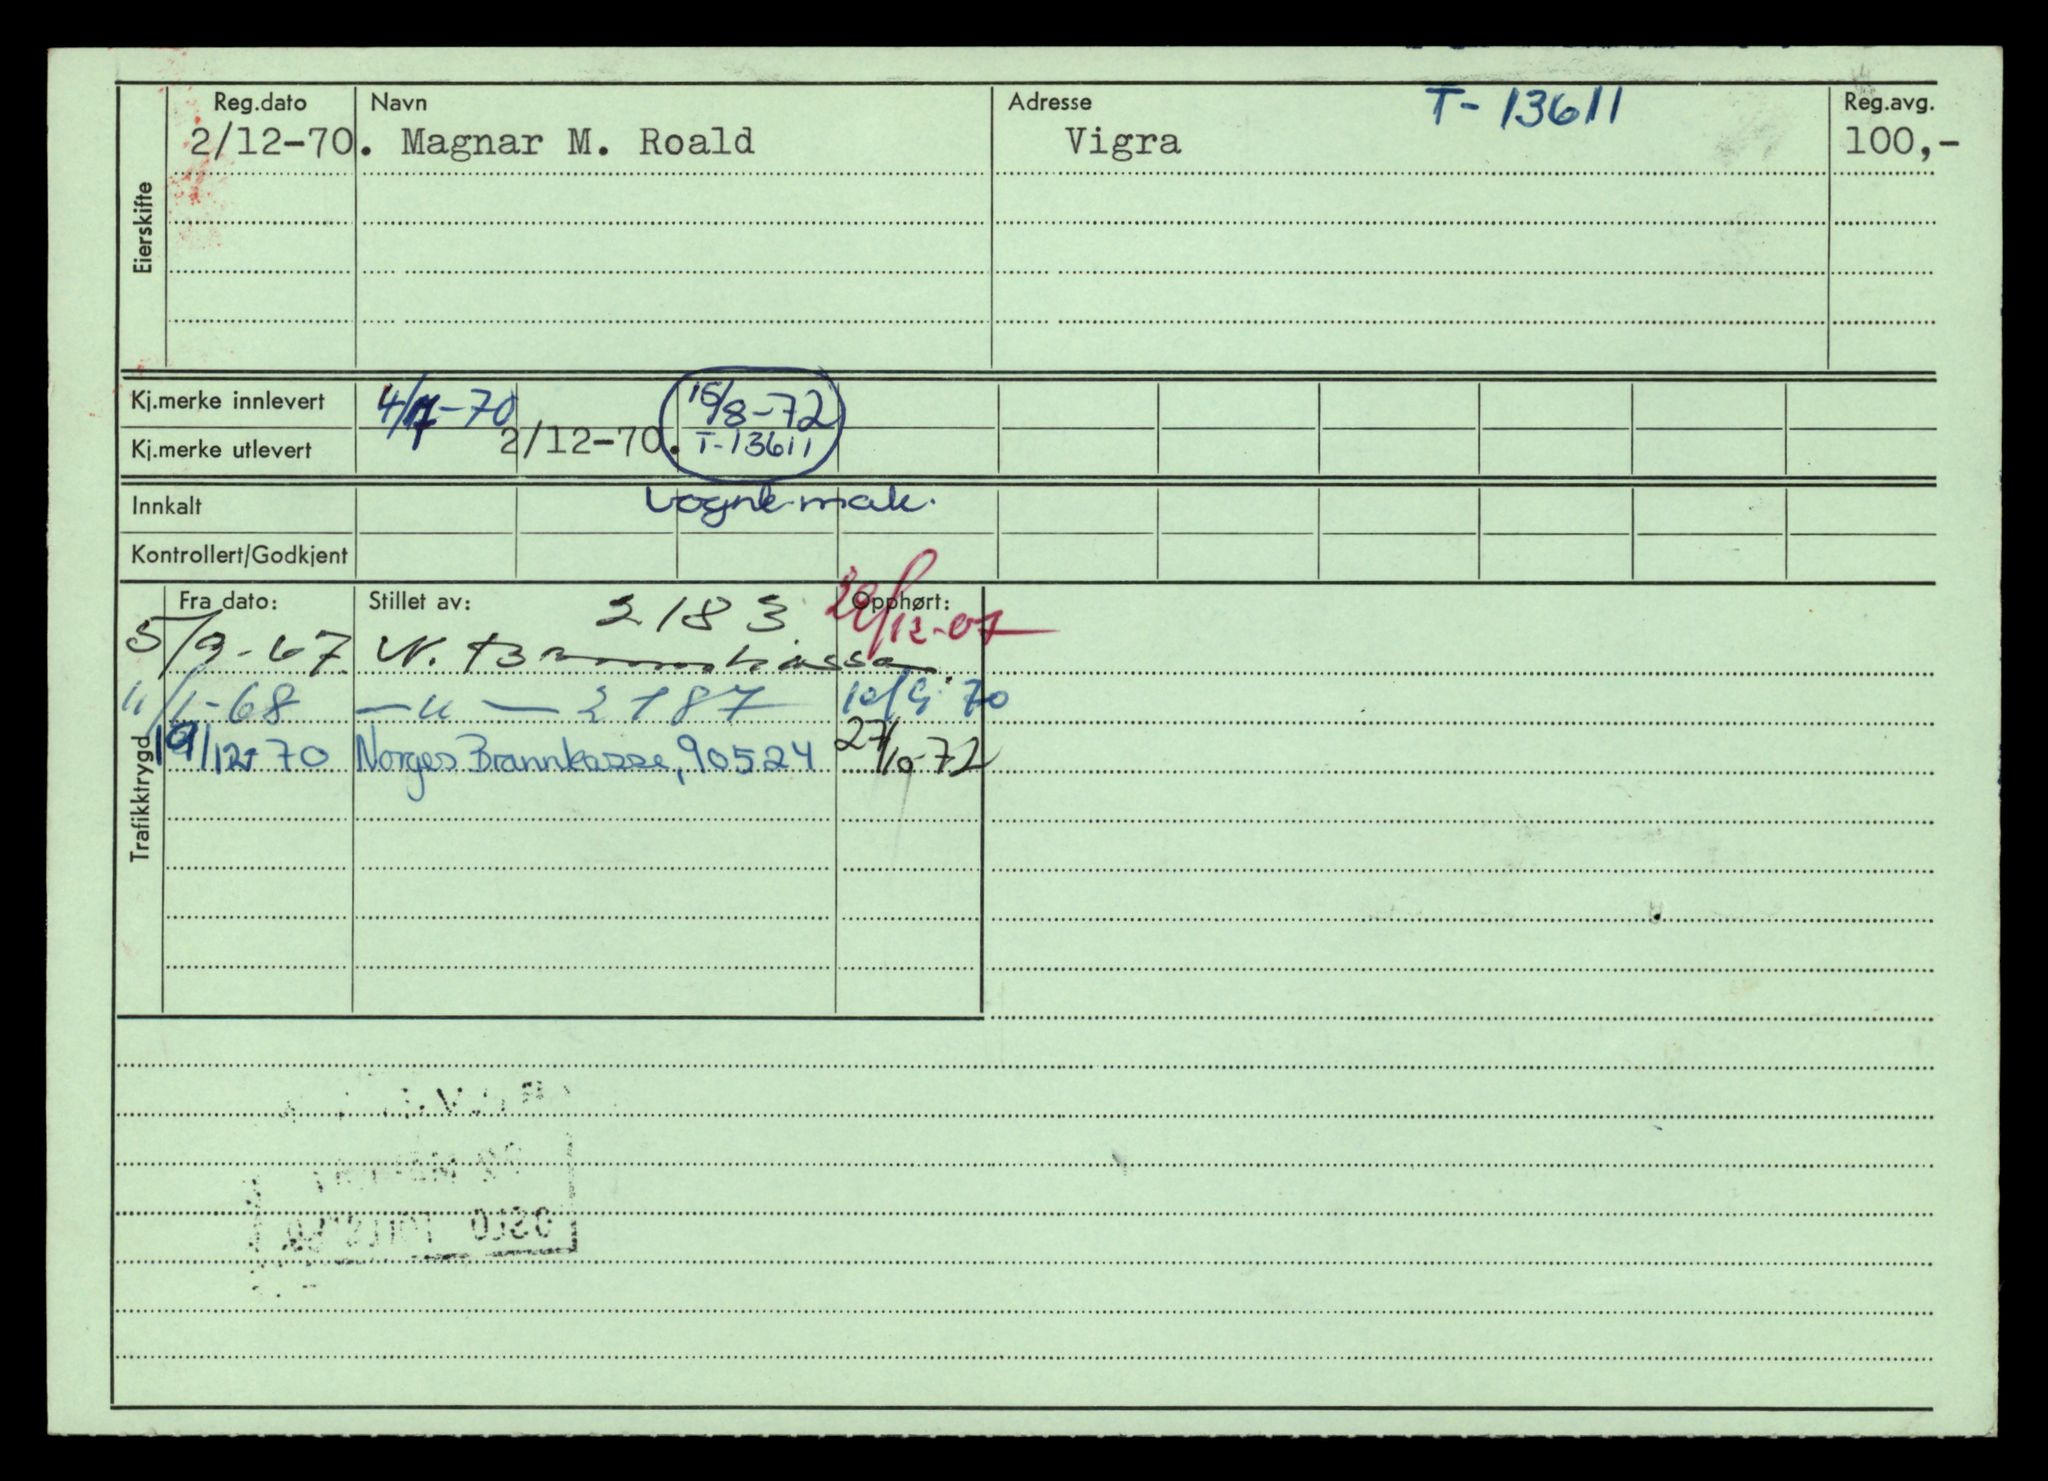 T-13611
Eierskifte Reg.dato Navn Adresse Reg.avg.
2/12-70. Magnar M. Roald Vigra 100,-
Kj.merke innlevert 4/7-70 15/8-72
Kj.merke utlevert 2/12-70. T-13611
Innkalt
Kontrollert/Godkjent
Trafikktrygd Fra dato: Stillet av: 2183 Opphørt: 29/12-67
5/9-67 N. Brannkassa
11/1-68 —"— 2187 10/9-70
19/12-70 Norges Brannkasse, 90524 27/10-72